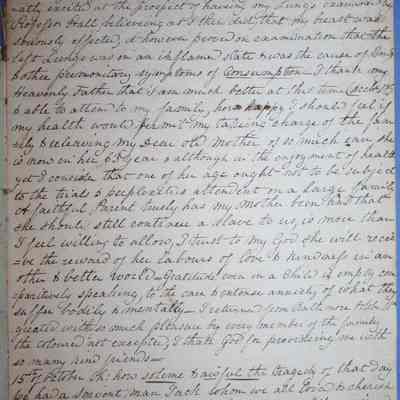 excited at the prospect of having my Lungs examined by
Professor Hall believing as I then did that my breast was
seriously effected, it however proved on examination that the
left Lung was in an inflamed state & was the cause of
other premonitory symptoms of Consumption - I thank my
Heavenly Father that I am much better at this time
& able to attend to my family, how happy I should feel if
my health would permit my taking charge of the fam
ily & releaving my dear old Mother of so much care, she
is now in her year & although in the enjoyment of health
yet I consider that one of her age ought not to be subject
to the trials & perplexities attendant on a Large family
A faithful Parent truly has my Mother been, and that
she should still continue a slave to us, is more than
I feel willing to allow, I trust to my God she will recei
=ve the reward of her labours of love & kindness in an
other & better world - Gratitude even in a Child is empty com
paritively speaking, to the care & intense anxiety of what they
suffer bodily & mentally - I returned from Baltimore
greeted with so much pleasure by every member of the family
the coloured not excepted, I thank God for providing me with
so many kind friends -
15th of October Oh: how solemn & awful the tragedy of that day
we had a servant man Jack whom we all loved to cherish